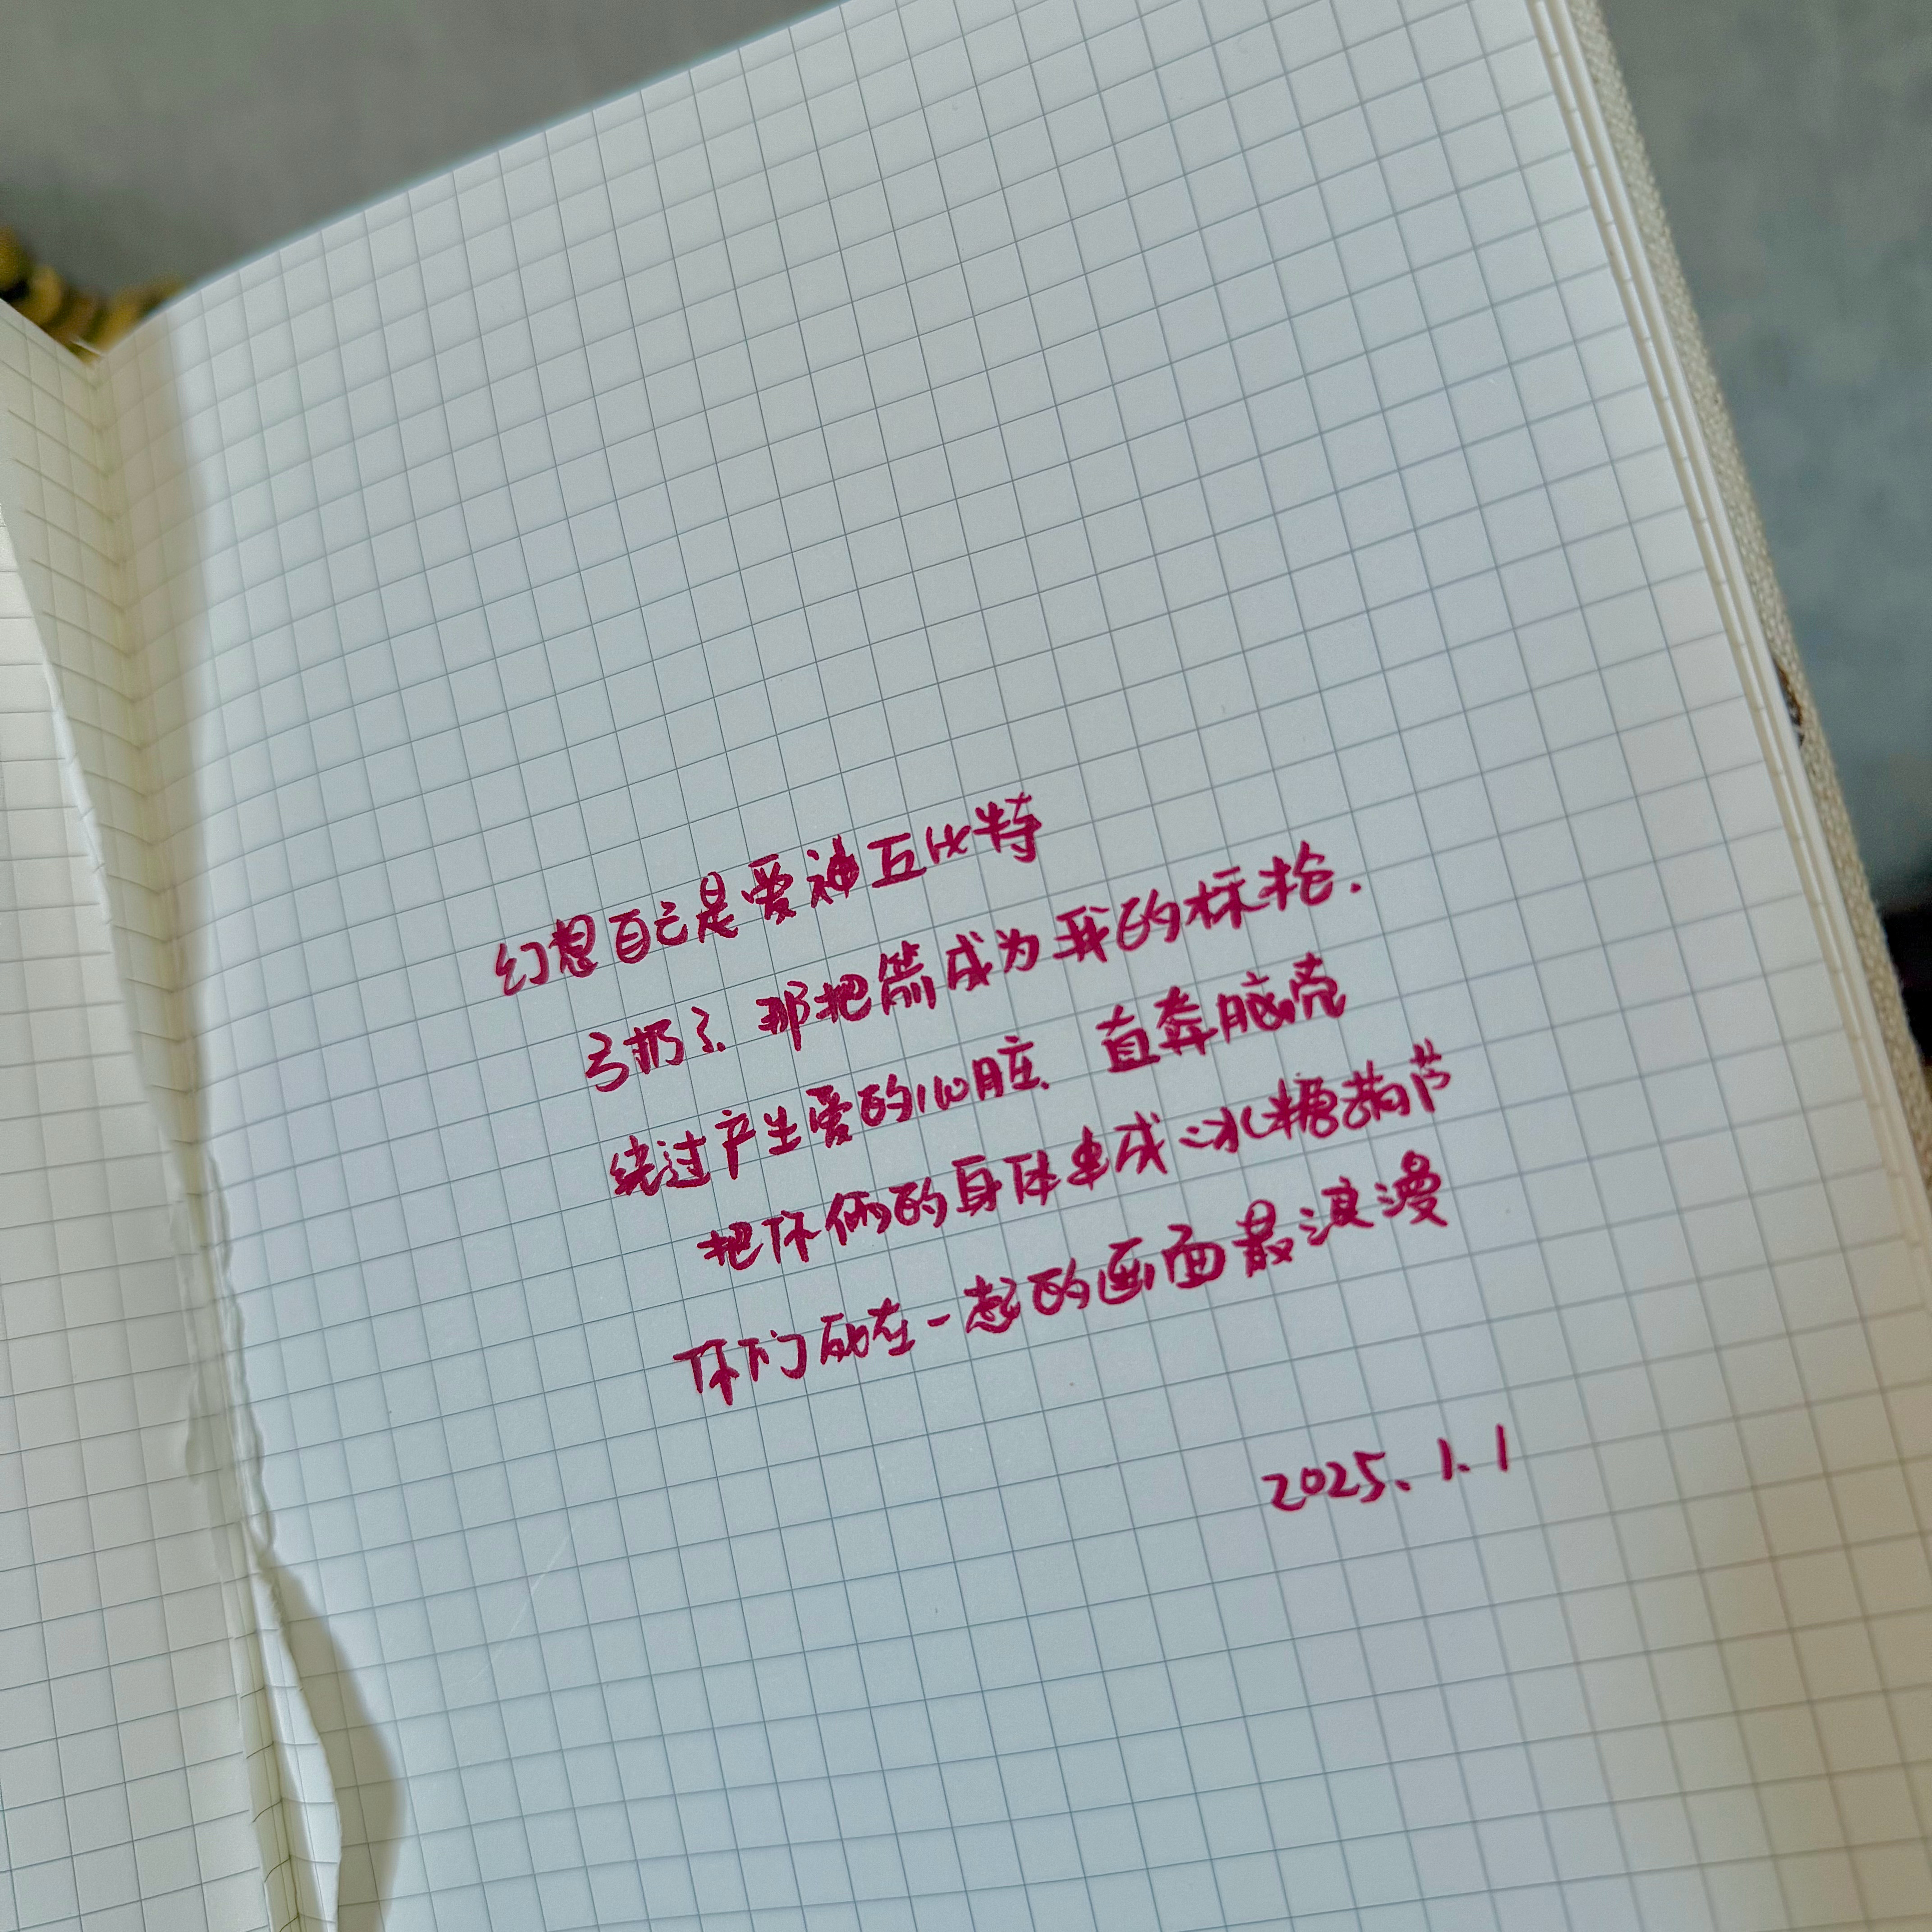 幻想自己是爱神丘比特
弓扔了、那把箭成为我的标枪.
绕过产生爱的心脏、直奔脑壳
把你俩的身体串成冰糖葫芦
你们死在一起的画面最浪漫
2025.1.1